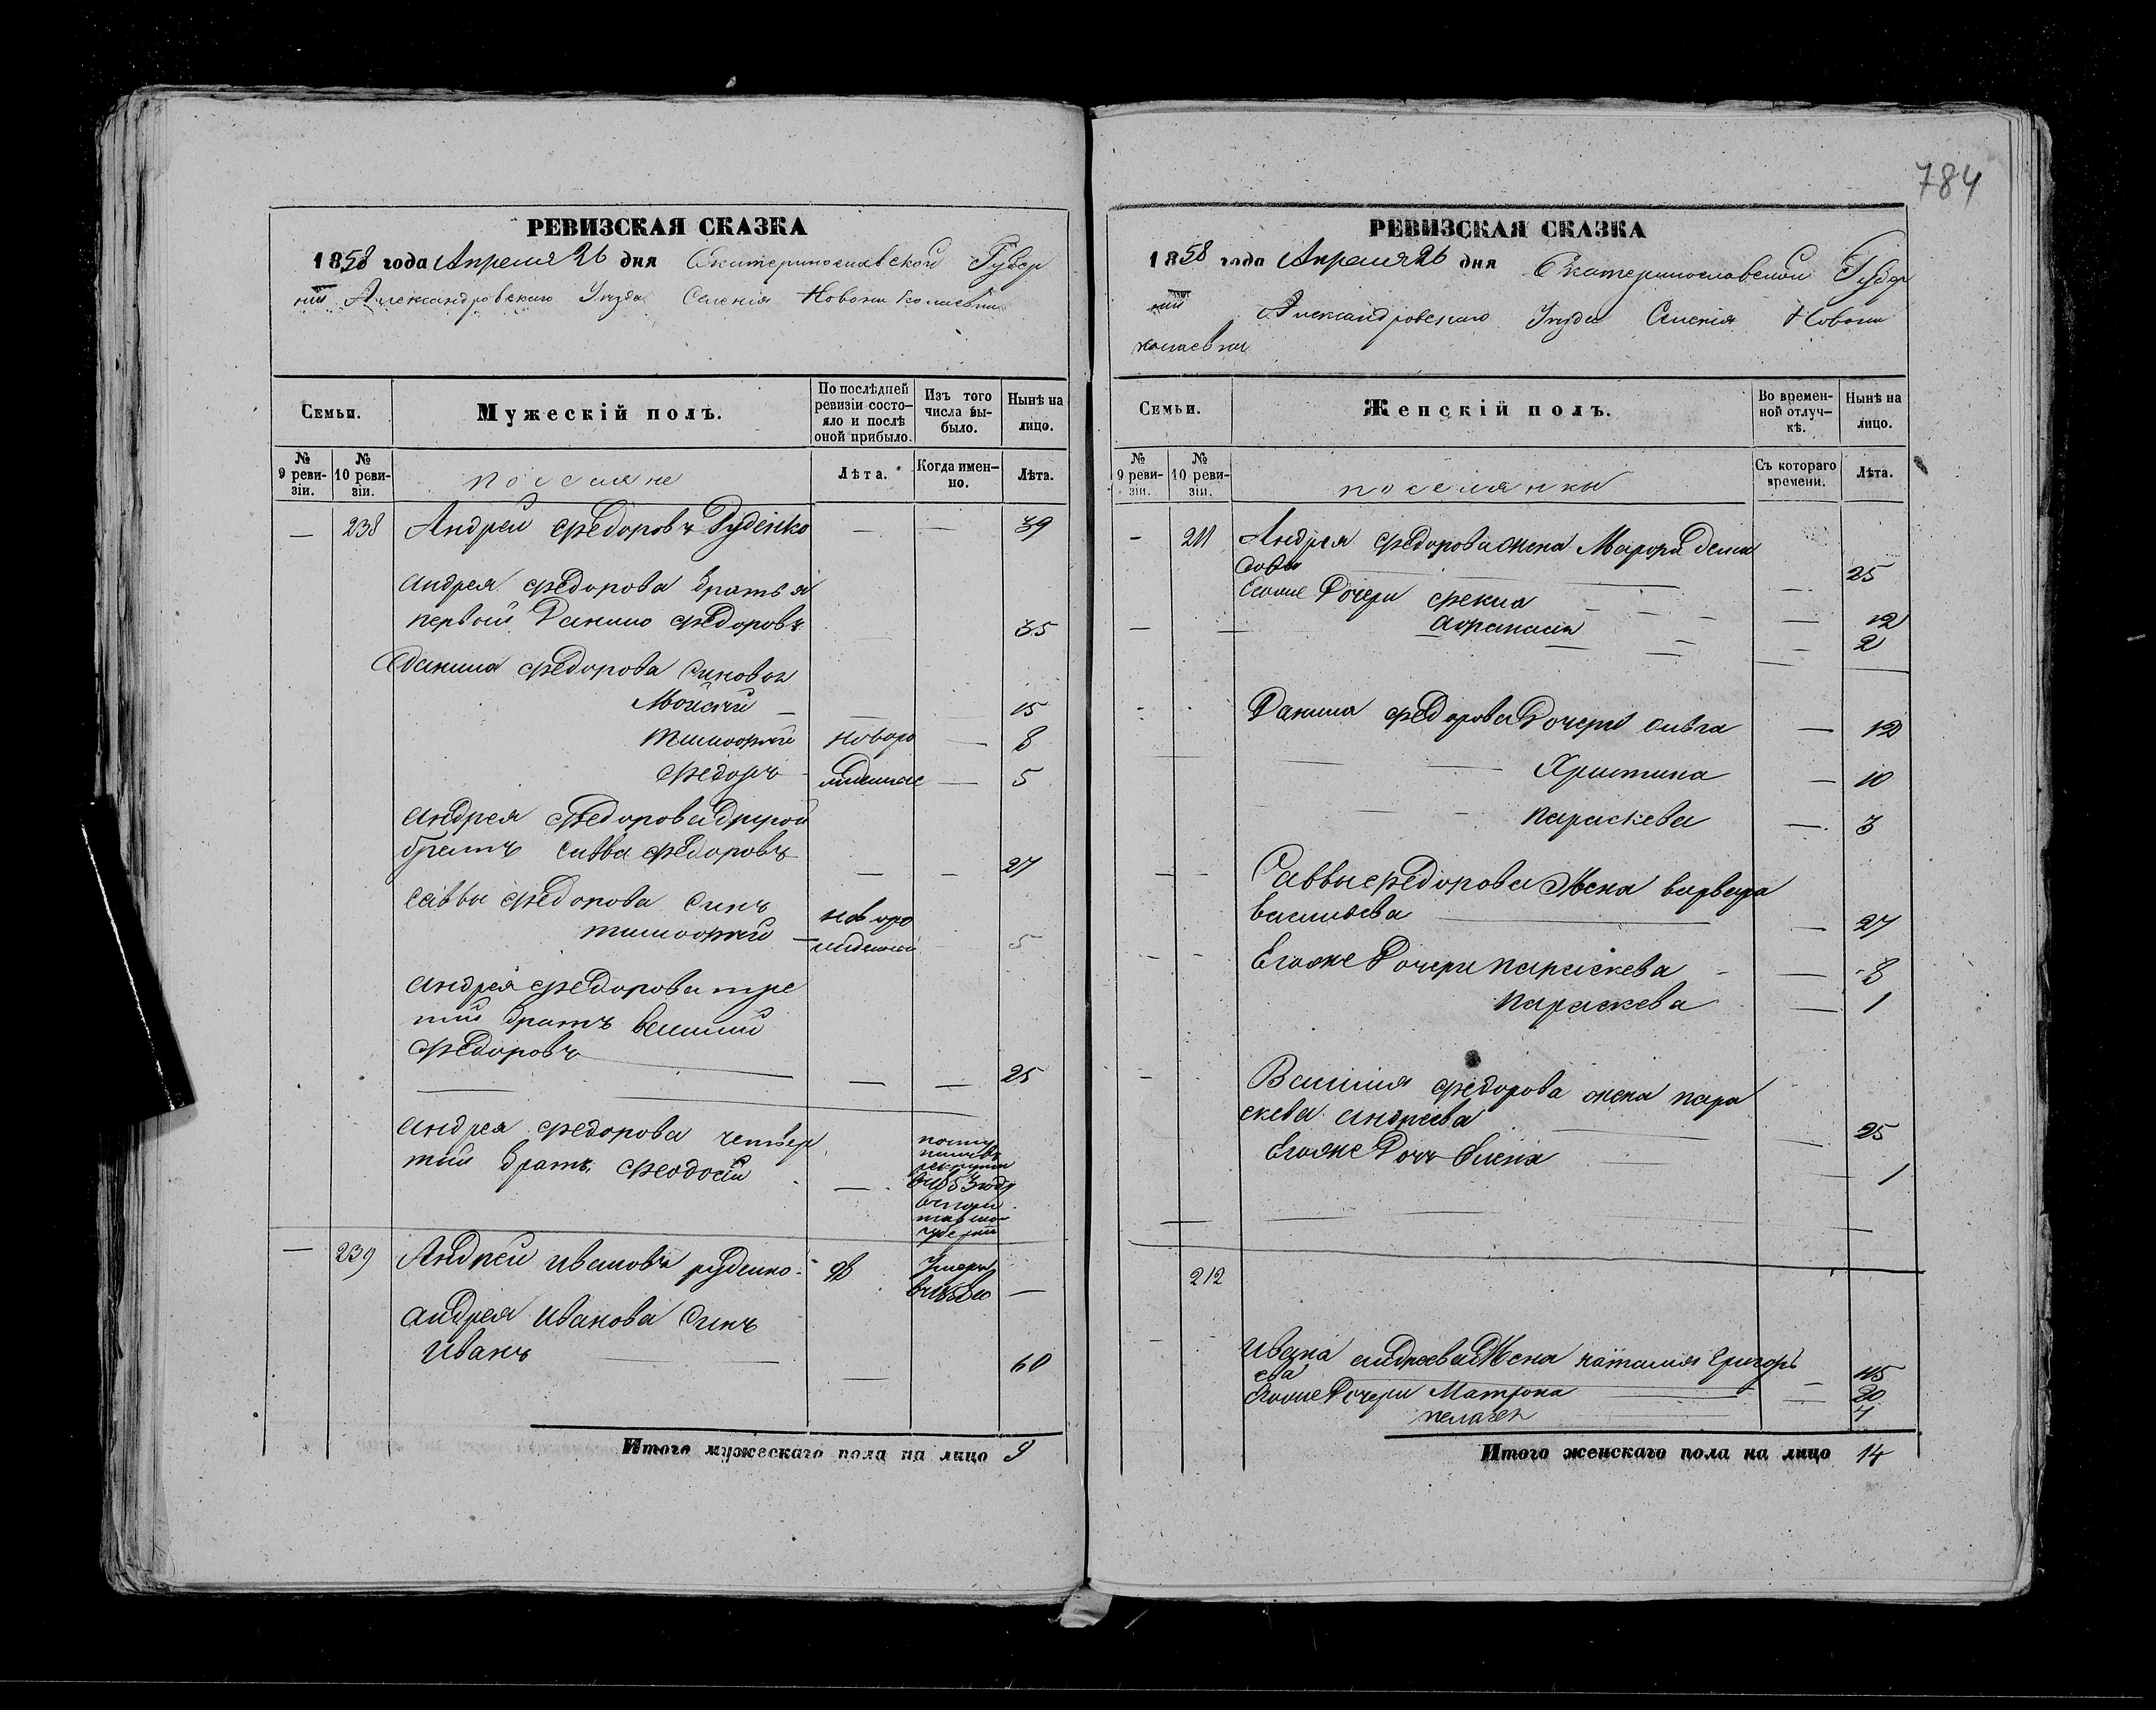 784
РЕВИЗСКАЯ СКАЗКА
1858 года Апреля 26 дня Екатеринославской Губер
нии Александровскаго Уезда Селенія Новониколаевки
Семьи.
Мужескій полъ.
По послѣдней ревизіи состо-
яло и послѣ
оной прибыло.
Изъ того
числа вы-
было.
Нынѣ на
лицо.
№
9 реви-
зіи.
№
10 реви-
зіи.
поселяне
Лѣта.
Когда имен-
но.
Лѣта.
— 238 Андрей Федоровъ Руденко — — 39
андрея Федорова братья
первый Данило Федоровъ 35
Данила Федорова синовья
Мойсей — — 15
тимофей новоро — 8
Федоръ жденные — 5
андрея Федорова другой
братъ савва Федоровъ — — 27
саввы Федорова синъ
тимофей — новоро
жденный 5
андрея Федорова тре
тий братъ василий
Федоровъ — — 25
андрея Федорова четвер
тий братъ Феодосій — посту
пилъ въ
рекруты
в 1853 году
губерніи
— 239 Андрей Ивановъ руденко Умеръ —
андрея Иванова синъ
Иванъ — 60
Итого мужескаго пола на лицо 9
РЕВИЗСКАЯ СКАЗКА
1858 года Апреля 26 дня Екатеринославской Губер
нии Александровскаго Уезда Селенія Новони
колаевки
Семьи.
Женскій полъ.
Во времен-
ной отлуч-
кѣ.
Нынѣ на
лицо.
№
9 реви-
зіи.
№
10 реви-
зіи.
поселянки
Съ котораго
времени.
Лѣта.
- 211 Андрея Федорова жена Марфа деми
дова 25
Егоже Дочери Фекла — 12
Афанасія — 2
Данила Федорова Дочери олвга — 12
Христина — 10
параскева — 3
Саввы Федорова Жена варвара
васильева — 27
Егоже Дочери параскева — 8
параскева — 1
Василия Федорова жена пара
скева андреева — 25
Егоже Дочь Елена 1
212
Ивана андреева Жена наталия Григорь
ева 45
Егоже Дочери Матрона — 20
пелагея 7
Итого женскаго пола на лицо 14